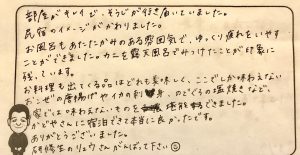 部屋がキレイで、そうじが行き届いていました。
民宿のイメージがかわりました。
お風呂もあたたかみのある雰囲気で、ゆっくり疲れをいやす
ことができました。カニを露天風呂でみつけたことが印象に
残っています。
お料理も出てくる品はどれも美味しく、ここでしか味わえない
おこぜの唐揚げやイカの刺身、のどぐろの塩焼きなど、
家では味わえないものを堪能できました。
かどやさんに宿泊でき本当に良かったです。
ありがとうございました。
研修生のリュウさんがんばって下さい